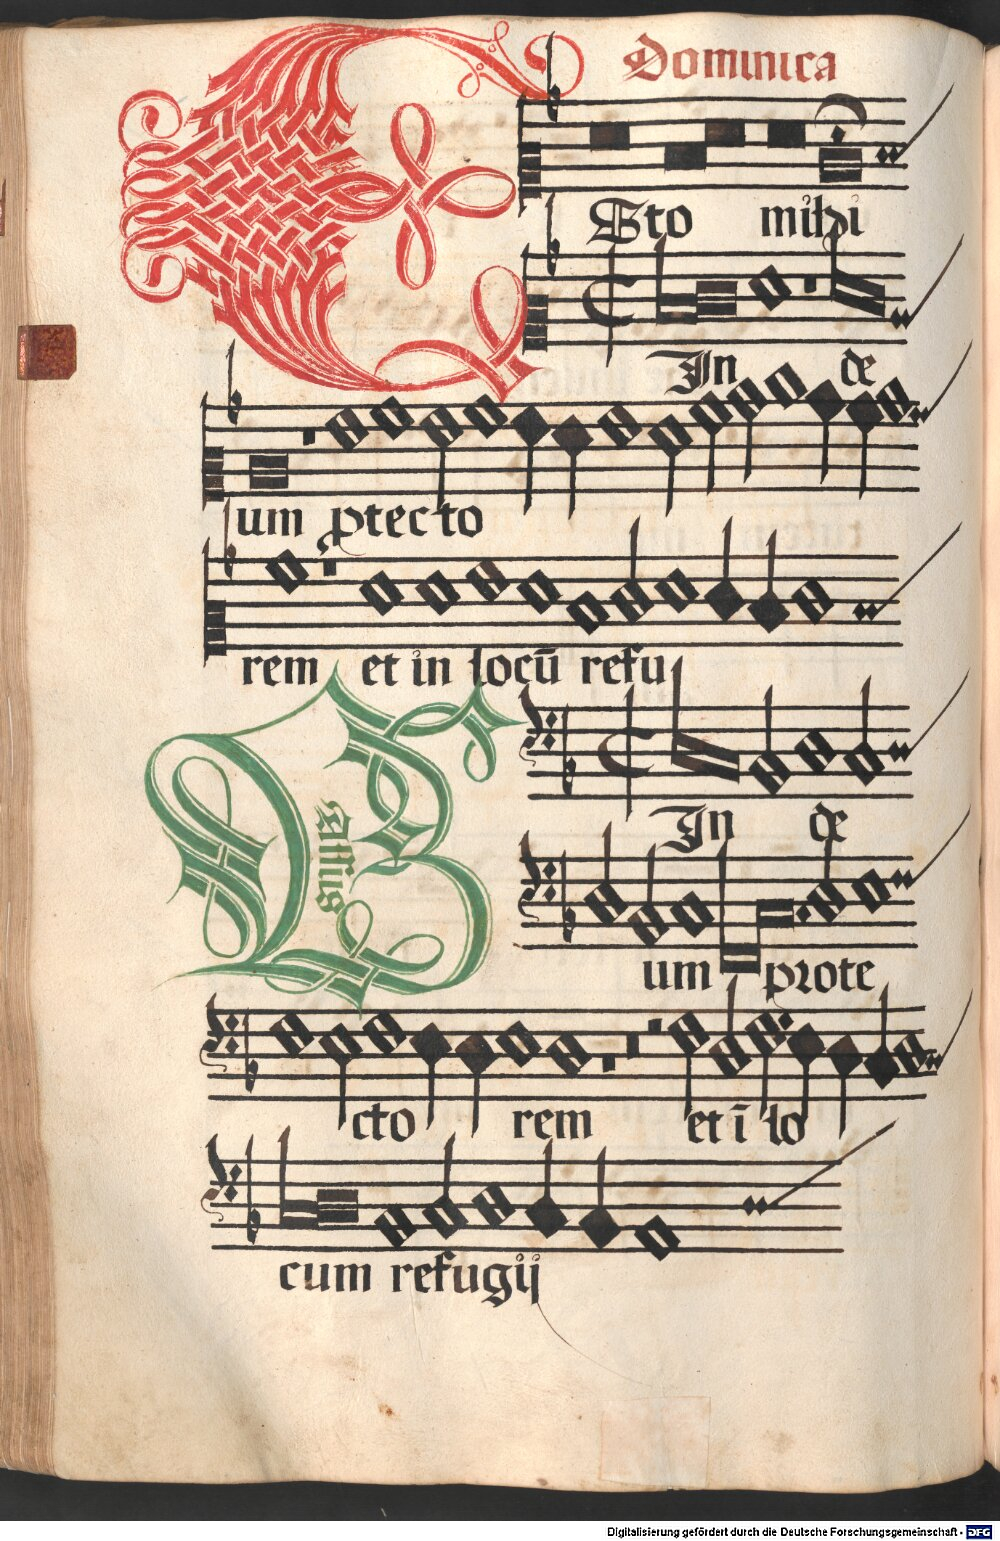 Dominica
Esto mihi
In de
um ꝓtecto
rem et in locū refu
Bassus
In de
um prote
cto rem et ī lo
cum refugij
Digitalisierung gefördert durch die Deutsche Forschungsgemeinschaft - DFG